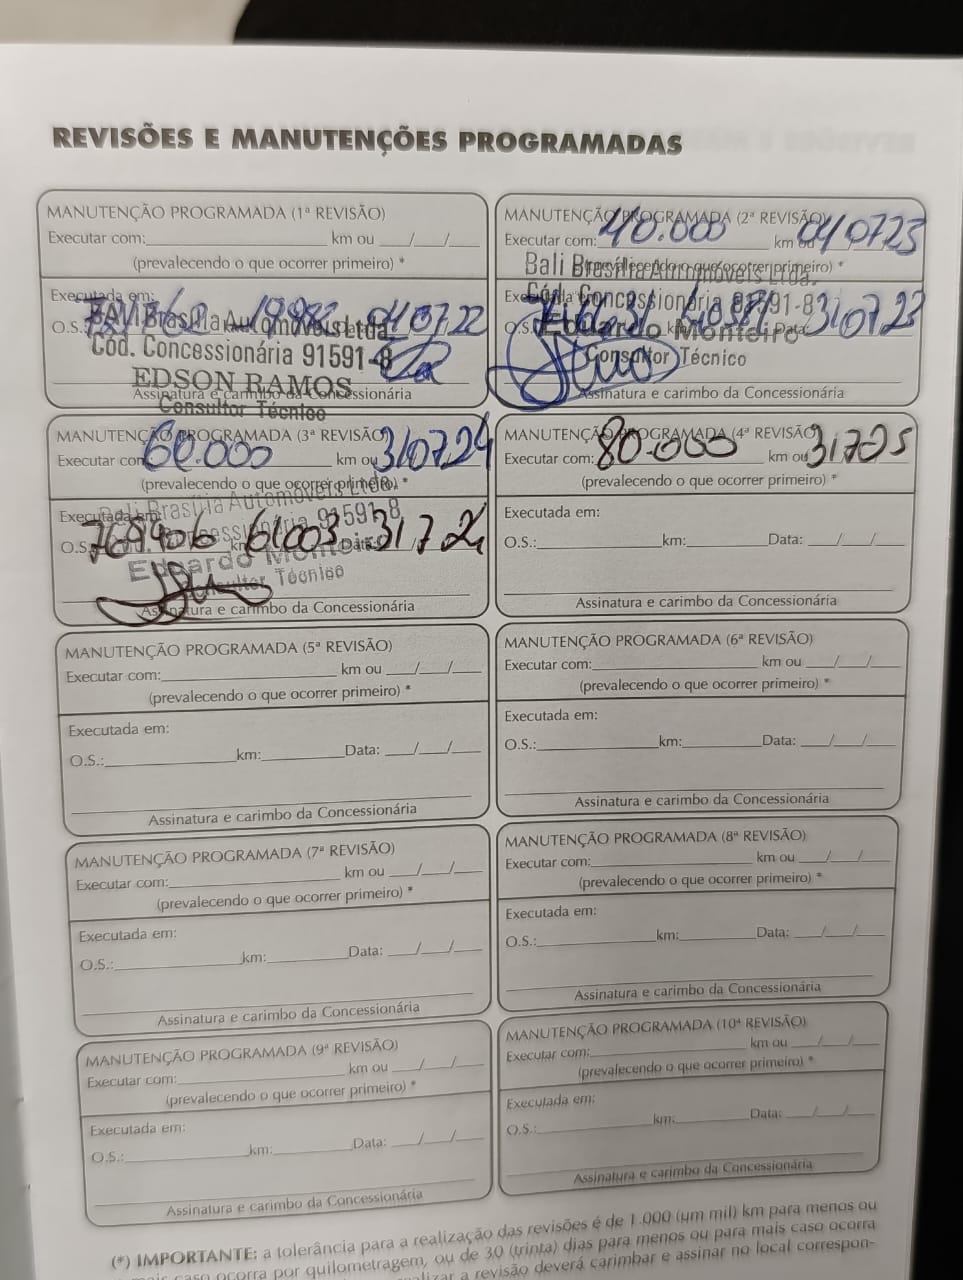 REVISÕES E MANUTENÇÕES PROGRAMADAS
MANUTENÇÃO PROGRAMADA (1ª REVISÃO)
Executar com: km ou / /
(prevalecendo o que ocorrer primeiro) *
Executada em:
O.S. 19.982 04 07 22
Brasília Automóveis Ltda.
Cód. Concessionária 91591-8
EDSON RAMOS
Assinatura e carimbo da Concessionária
Consultor Técnico
MANUTENÇÃO PROGRAMADA (2ª REVISÃO)
Executar com: 40.000 km ou 04 07 23
(prevalecendo o que ocorrer primeiro) *
Bali Brasília Automóveis Ltda.
Executada em:
Cód. Concessionária 91591-8
O.S. km Data: 31 07 23
Eduardo Monteiro
Consultor Técnico
Assinatura e carimbo da Concessionária
MANUTENÇÃO PROGRAMADA (3ª REVISÃO)
Executar com: 60.000 km ou 31 07 24
(prevalecendo o que ocorrer primeiro) *
Bali Brasília Automóveis Ltda.
Executada em:
Concessionária 91591-8
O.S. 769406 km 61003 Data: 31 7 24
Eduardo Monteiro
Consultor Técnico
Assinatura e carimbo da Concessionária
MANUTENÇÃO PROGRAMADA (4ª REVISÃO)
Executar com: 80.000 km ou 31 7 25
(prevalecendo o que ocorrer primeiro) *
Executada em:
O.S.: km: Data: / /
Assinatura e carimbo da Concessionária
MANUTENÇÃO PROGRAMADA (5ª REVISÃO)
Executar com: km ou / /
(prevalecendo o que ocorrer primeiro) *
Executada em:
O.S.: km: Data: / /
Assinatura e carimbo da Concessionária
MANUTENÇÃO PROGRAMADA (6ª REVISÃO)
Executar com: km ou / /
(prevalecendo o que ocorrer primeiro) *
Executada em:
O.S.: km: Data: / /
Assinatura e carimbo da Concessionária
MANUTENÇÃO PROGRAMADA (7ª REVISÃO)
Executar com: km ou / /
(prevalecendo o que ocorrer primeiro) *
Executada em:
O.S.: km: Data: / /
Assinatura e carimbo da Concessionária
MANUTENÇÃO PROGRAMADA (8ª REVISÃO)
Executar com: km ou / /
(prevalecendo o que ocorrer primeiro) *
Executada em:
O.S.: km: Data: / /
Assinatura e carimbo da Concessionária
MANUTENÇÃO PROGRAMADA (9ª REVISÃO)
Executar com: km ou / /
(prevalecendo o que ocorrer primeiro) *
Executada em:
O.S.: km: Data: / /
Assinatura e carimbo da Concessionária
MANUTENÇÃO PROGRAMADA (10ª REVISÃO)
Executar com: km ou / /
(prevalecendo o que ocorrer primeiro) *
Executada em:
O.S.: km: Data: / /
Assinatura e carimbo da Concessionária
(*) IMPORTANTE: a tolerância para a realização das revisões é de 1.000 (um mil) km para menos ou
caso ocorra por quilometragem, ou de 30 (trinta) dias para menos ou para mais caso ocorra
a revisão deverá carimbar e assinar no local correspon-